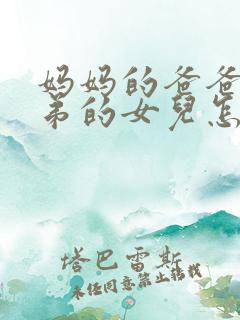 妈妈的爸爸
弟的女兒怎
塔巴雷斯
未经同意禁止转载